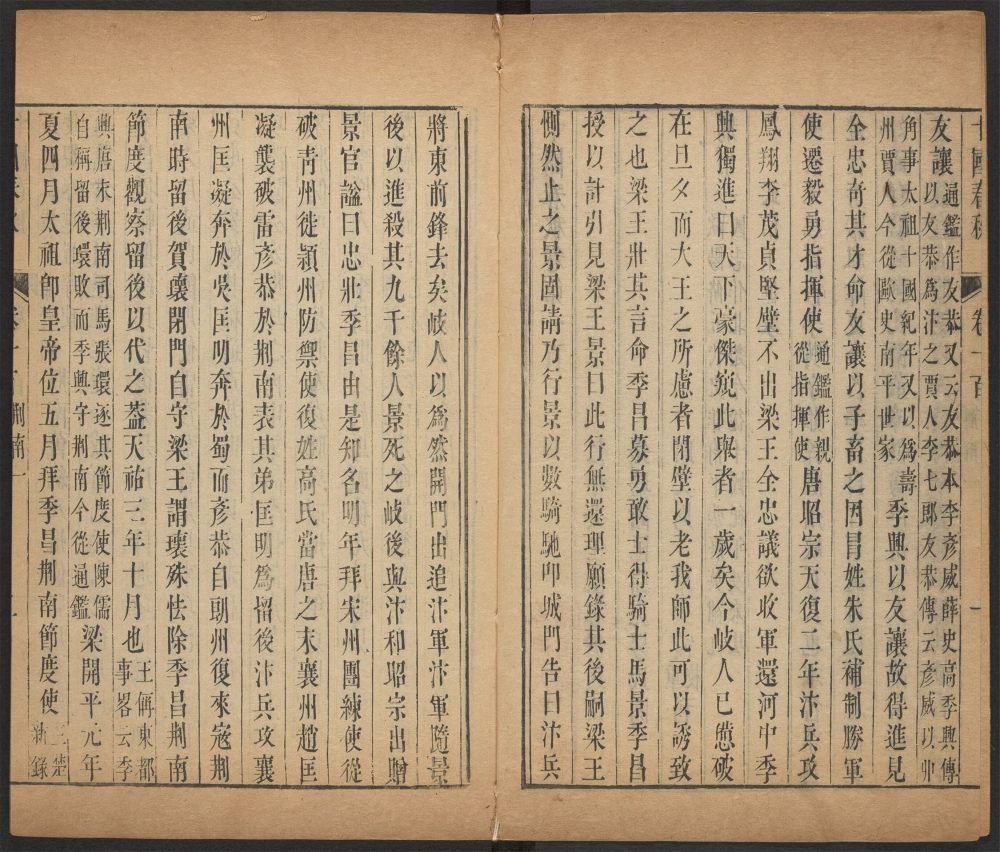 十國春秋 卷一百 一
友讓通鑑作友恭又云友恭本李彥威薛史高季興傳
以友恭爲汴之賈人李七郎友恭傳云彥威以丱
角事太祖十國紀年又以爲壽
州賈人今從歐史南平世家季興以友讓故得進見
全忠奇其才命友讓以子畜之因冐姓朱氏補制勝軍
使遷毅勇指揮使通鑑作親
從指揮使唐昭宗天復二年汴兵攻
鳳翔李茂貞堅壁不出梁王全忠議欲收軍還河中季
興獨進曰天下豪傑窺此舉者一歲矣今岐人已憊破
在旦夕而大王之所慮者閉壁以老我師此可以誘致
之也梁王壯其言命季昌募勇敢士得騎士馬景季昌
授以計引見梁王景曰此行無還理願錄其後嗣梁王
惻然止之景固請乃行景以數騎馳叩城門告曰汴兵
將東前鋒去矣岐人以爲然開門出追汴軍汴軍隨景
後以進殺其九千餘人景死之岐後與汴和昭宗出贈
景官謚曰忠壯季昌由是知名明年拜宋州團練使從
破靑州徙潁州防禦使復姓高氏當唐之末襄州趙匡
凝襲破雷彥恭於荆南表其弟匡明爲留後汴兵攻襄
州匡凝奔於吳匡明奔於蜀而彥恭自朗州復來寇荆
南時留後賀瓌閉門自守梁王謂瓌殊怯除季昌荆南
節度觀察留後以代之葢天祐三年十月也王偁東都
事畧云季
興唐末荆南司馬張瓌逐其節度使陳儒
自稱留後瓌敗而季興守荆南今從通鑑梁開平元年
夏四月太祖卽皇帝位五月拜季昌荆南節度使三楚
新錄
十國春秋 卷一百 荆南一 一